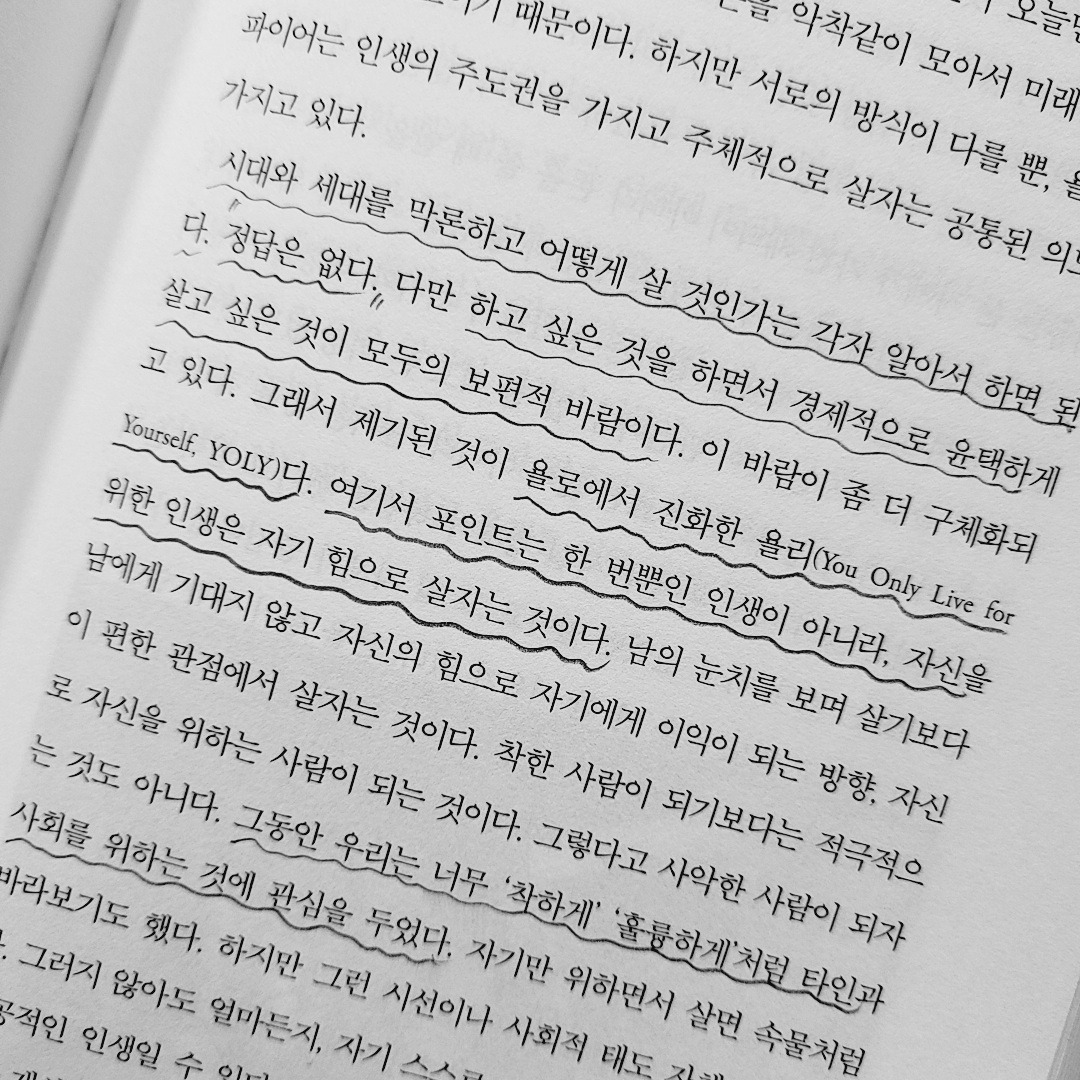 때문이다. 하지만 서로의 방식이 다를 뿐,
악착같이 모아서 미래
파이어는 인생의 주도권을 가지고 주체적으로 살자는 공통된
가지고 있다.
시대와 세대를 막론하고 어떻게 살 것인가는 각자 알아서 하면 된
다. 정답은 없다. 다만 하고 싶은 것을 하면서 경제적으로 윤택하게
살고 싶은 것이 모두의 보편적 바람이다. 이 바람이 좀 더 구체화되
고 있다. 그래서 제기된 것이 욜로에서 진화한 욜리(You Only Live for
Yourself, YOLY)다. 여기서 포인트는 한 번뿐인 인생이 아니라, 자신을
위한 인생은 자기 힘으로 살자는 것이다. 남의 눈치를 보며 살기보다
남에게 기대지 않고 자신의 힘으로 자기에게 이익이 되는 방향, 자신
이 편한 관점에서 살자는 것이다. 착한 사람이 되기보다는 적극적으
로 자신을 위하는 사람이 되는 것이다. 그렇다고 사악한 사람이 되자
는 것도 아니다. 그동안 우리는 너무 ‘착하게’ ‘훌륭하게’처럼 타인과
사회를 위하는 것에 관심을 두었다. 자기만 위하면서 살면 속물처럼
바라보기도 했다. 하지만 그런 시선이나 사회적 태도
그러지 않아도 얼마든지, 자기 스스로
인생일 수